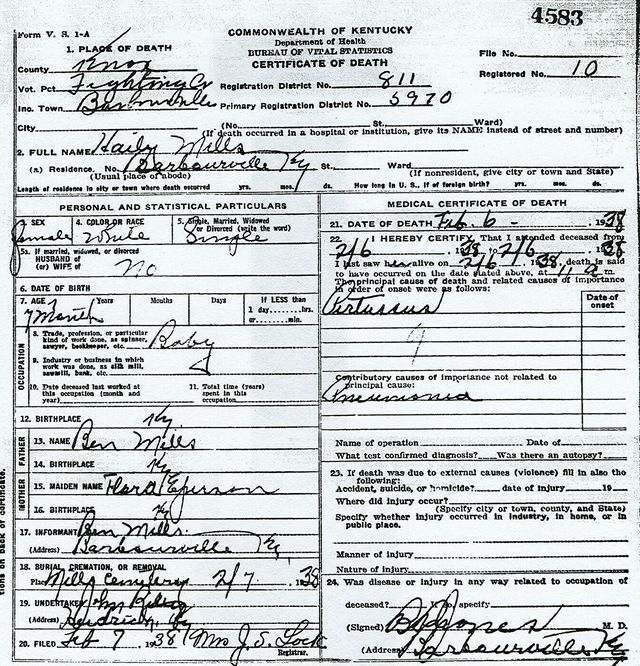 4583
Form V. S. 1-A
COMMONWEALTH OF KENTUCKY
Department of Health
BUREAU OF VITAL STATISTICS
CERTIFICATE OF DEATH
1. PLACE OF DEATH
County Knox
File No.
Registered No. 10
Vot. Pct Fighting Cr Registration District No. 811
Inc. Town Barbourville Primary Registration District No. 5970
City (No. St., Ward)
(If death occurred in a hospital or institution, give its NAME instead of street and number)
2. FULL NAME Haily Mills
(a) Residence. No. Barbourville Ky St., Ward
(Usual place of abode) (If nonresident, give city or town and State)
Length of residence in city or town where death occurred yrs. mos. ds. How long in U. S., if of foreign birth? yrs. mos. ds.
PERSONAL AND STATISTICAL PARTICULARS
3. SEX female
4. COLOR OR RACE White
5. Single, Married, Widowed or Divorced (write the word) Single
5a. If married, widowed, or divorced
HUSBAND of
(or) WIFE of no
6. DATE OF BIRTH
7. AGE Years Months Days If LESS than
1 day, hrs.
or min.
7 Month
OCCUPATION
8. Trade, profession, or particular
kind of work done, as spinner,
sawyer, bookkeeper, etc. Baby
9. Industry or business in which
work was done, as silk mill,
sawmill, bank, etc.
10. Date deceased last worked at
this occupation (month and
year)
11. Total time (years)
spent in this
occupation
12. BIRTHPLACE Ky
FATHER
13. NAME Ben Mills
14. BIRTHPLACE Ky
MOTHER
15. MAIDEN NAME Flara Eperson
16. BIRTHPLACE Ky
17. INFORMANT Ben Mills
(Address) Barbourville Ky
18. BURIAL, CREMATION, OR REMOVAL
Place Mills Cemetery 2/7 1938
19. UNDERTAKER John
(Address) Ky
20. FILED Feb 7 1938 Mrs J. S. Lock
Registrar.
MEDICAL CERTIFICATE OF DEATH
21. DATE OF DEATH Feb. 6 - 1938
22. I HEREBY CERTIFY, That I attended deceased from
2/6 1938 to 2/6 1938
I last saw h alive on 2/6 1938, death is said
to have occurred on the date stated above, at 11 a m.
The principal cause of death and related causes of importance
in order of onset were as follows:
Date of
onset
Pertussus
9
Contributory causes of importance not related to
principal cause:
Pneumonia
Name of operation Date of
What test confirmed diagnosis? Was there an autopsy?
23. If death was due to external causes (violence) fill in also the
following:
Accident, suicide, or homicide? date of injury 19
Where did injury occur?
(Specify city or town, county, and State)
Specify whether injury occurred in industry, in home, or in
public place.
Manner of injury
Nature of injury
24. Was disease or injury in any way related to occupation of
deceased? No specify
(Signed) Jones M. D.
(Address) Barbourville Ky
tions on back of certificate.